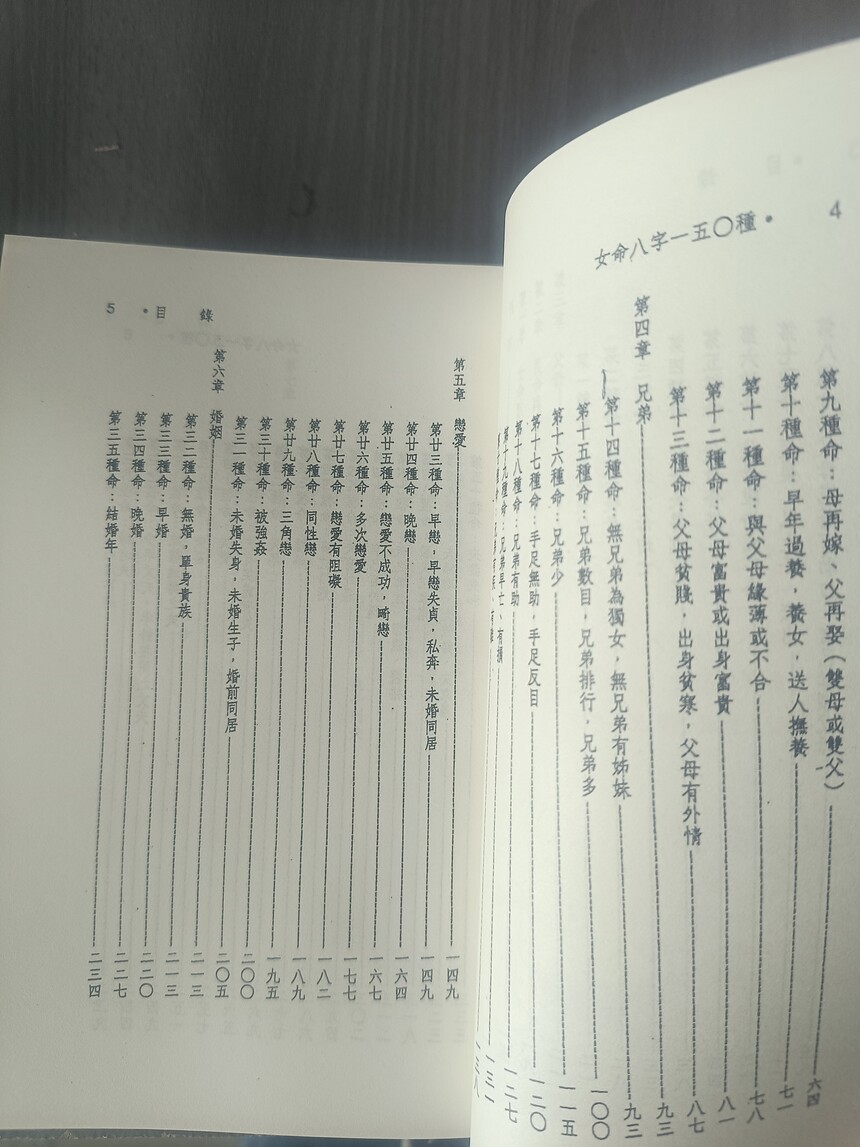 4
女命八字一五〇種•
第九種命：母再嫁、父再娶（雙母或雙父）六四
第十種命：早年過養，養女，送人撫養 七一
第十一種命：與父母緣薄或不合 七八
第十二種命：父母富貴或出身富貴 八一
第十三種命：父母貧賤，出身貧寒，父母有外情 八七
第四章 兄弟 九三
第十四種命：無兄弟為獨女，無兄弟有姊妹 九三
第十五種命：兄弟數目，兄弟排行，兄弟多 一〇〇
第十六種命：兄弟少 一一五
第十七種命：手足無助，手足反目 一二〇
第十八種命：兄弟有助 一二七
第十九種命：兄弟早亡、有損 一三一
一三八
5 •目 錄
第五章 戀愛 一四九
第廿三種命：早戀，早戀失貞，私奔，未婚同居 一四九
第廿四種命：晚戀 一六四
第廿五種命：戀愛不成功，畸戀 一六七
第廿六種命：多次戀愛 一七七
第廿七種命：戀愛有阻礙 一八二
第廿八種命：同性戀 一八九
第廿九種命：三角戀 一九五
第三十種命：被強姦 二〇〇
第三一種命：未婚失身，未婚生子，婚前同居 二〇五
第六章 婚姻 二一三
第三二種命：無婚，單身貴族 二一三
第三三種命：早婚 二二〇
第三四種命：晚婚 二二七
第三五種命：結婚年 二三四